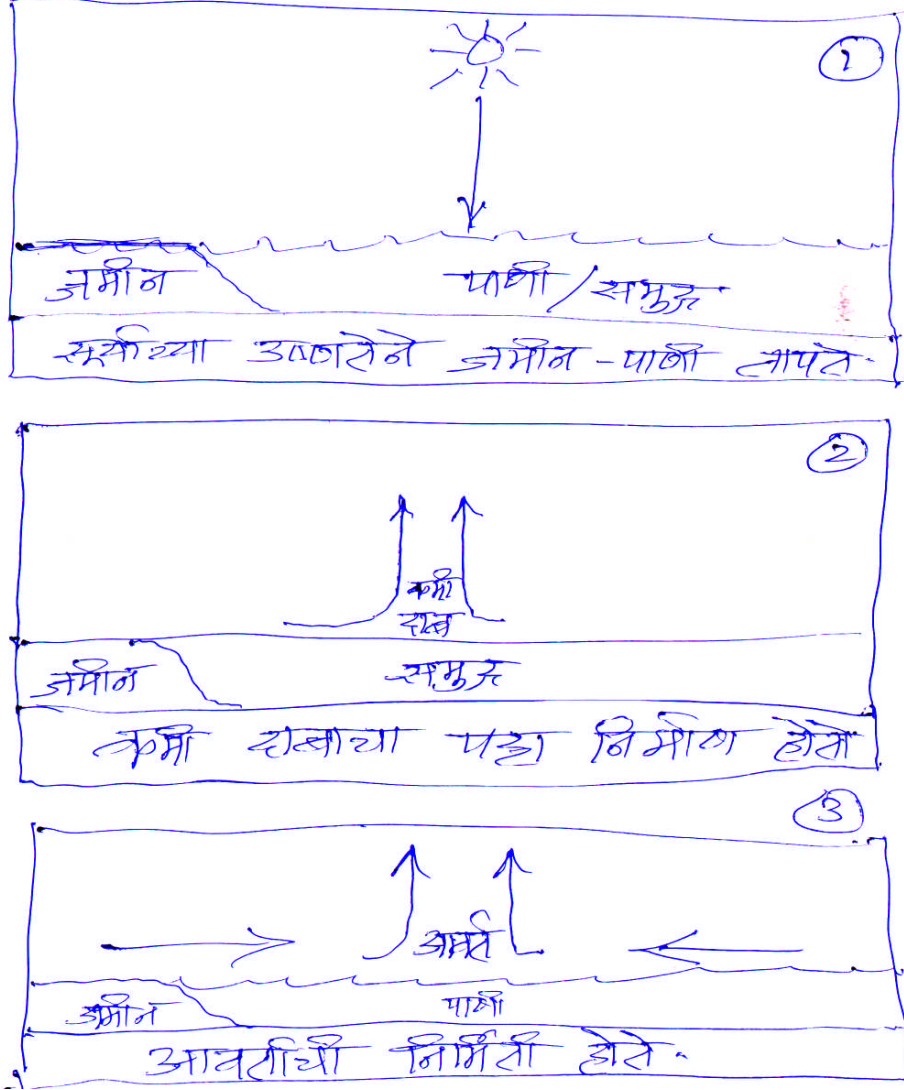 १
जमीन पाणी / समुद्र
सूर्याच्या उष्णतेने जमीन - पाणी तापते.
२
कमी
दाब
जमीन समुद्र
कमी दाबाचा पट्टा निर्माण होतो
३
आवर्त
जमीन पाणी
आवर्ताची निर्मिती होते.